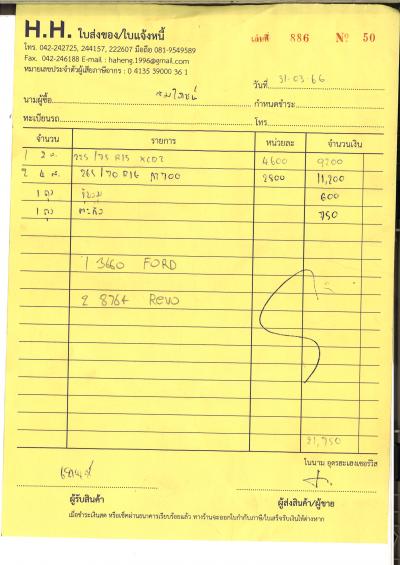 H.H. ใบส่งของ/ใบแจ้งหนี้
เล่มที่ 886 Nº 50
โทร. 042-242725, 244157, 222607 มือถือ 081-9549589
Fax. 042-246188 E-mail : haheng.1996@gmail.com
หมายเลขประจำตัวผู้เสียภาษีอากร : 0 4135 39000 36 1
วันที่ 31-03-66
นามผู้ซื้อ กำหนดชำระ
ทะเบียนรถ โทร
จำนวน รายการ หน่วยละ จำนวนเงิน
1 2 ส. 225/75 R15 4600 9200
2 4 ส. 265/70 R16 A7700 2800 11,200
600
750
1 3660 FORD
2 8764 Revo
21,750
ในนาม อุดรฮะเฮงเซอร์วิส
ผู้รับสินค้า ผู้ส่งสินค้า/ผู้ขาย
เมื่อชำระเงินสด หรือเช็คผ่านธนาคารเรียบร้อยแล้ว ทางร้านจะออกใบกำกับภาษี/ใบเสร็จรับเงินให้ต่างหาก